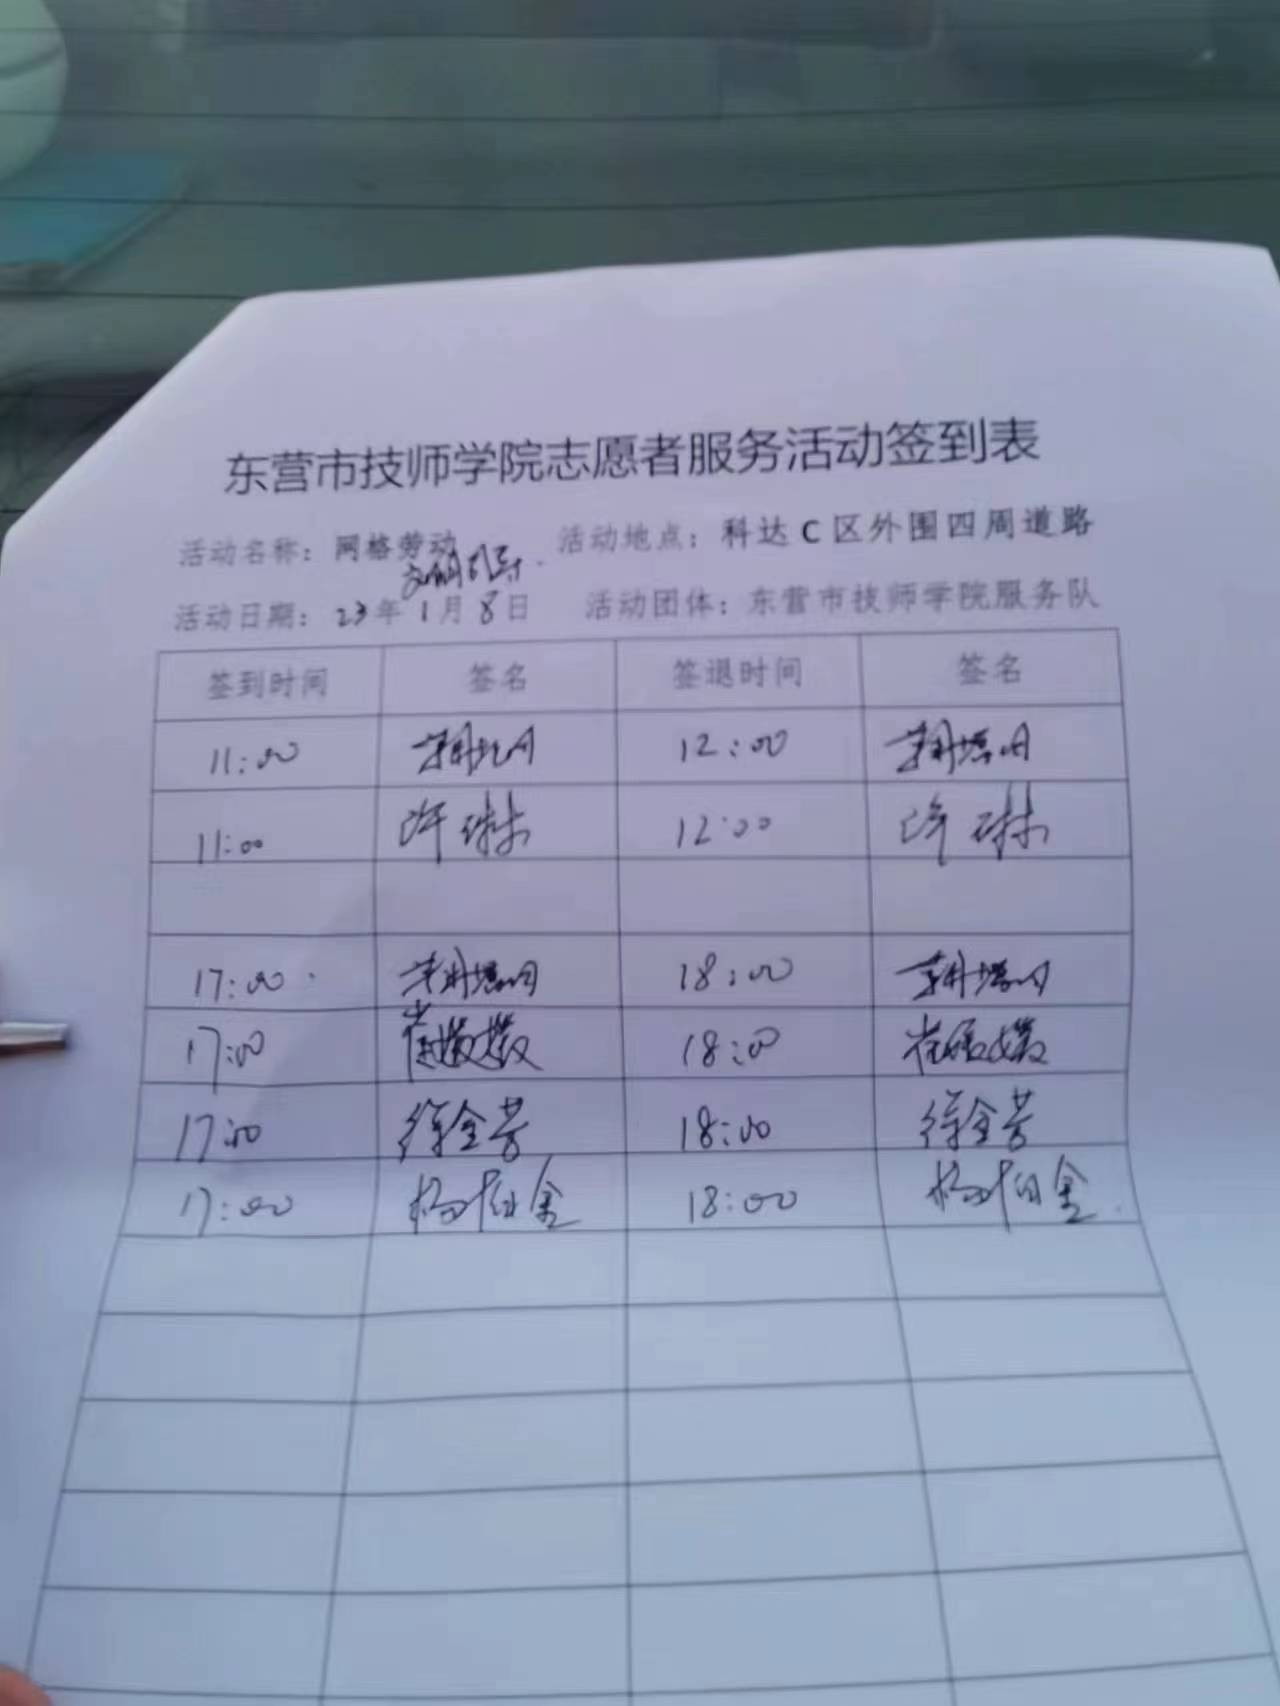 东营市技师学院志愿者服务活动签到表
活动名称：网格劳动 活动地点：科达C区外围四周道路
文明引导.
活动日期：23年1月8日 活动团体：东营市技师学院服务队
签到时间 签名 签退时间 签名
11:00 12:00
11:00 许琳 12:00 许琳
17:00 18:00
17:00 崔媛媛 18:00 崔媛媛
17:00 徐全芳 18:00 徐全芳
17:00 杨伯金 18:00 杨伯金